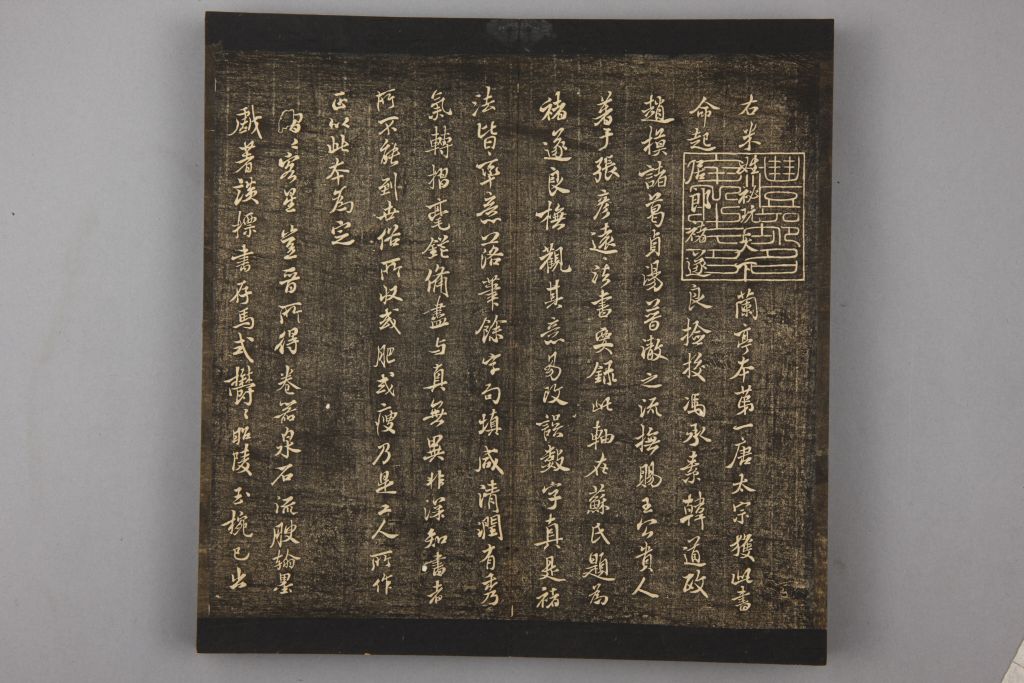 右米姓秘玩天下蘭亭本第一唐太宗獲此書
命起居郎褚遂良撿挍馮承素韓道政
趙模諸葛貞湯普澈之流撫賜王公貴人
著于張彦遠法書要録此軸在蘇氏題為
褚遂良撫觀其意易改誤數字真是褚
法皆率意落筆餘字勾填咸清潤有秀
氣轉摺毫鋩俻盡与真無異非深知書者
所不能到世俗所收或肥或瘦乃是工人所作
正以此本為定
熠〻客星豈晉所得卷器泉石流腴翰墨
戲著談標書存馬式欝〻昭陵玉椀已出